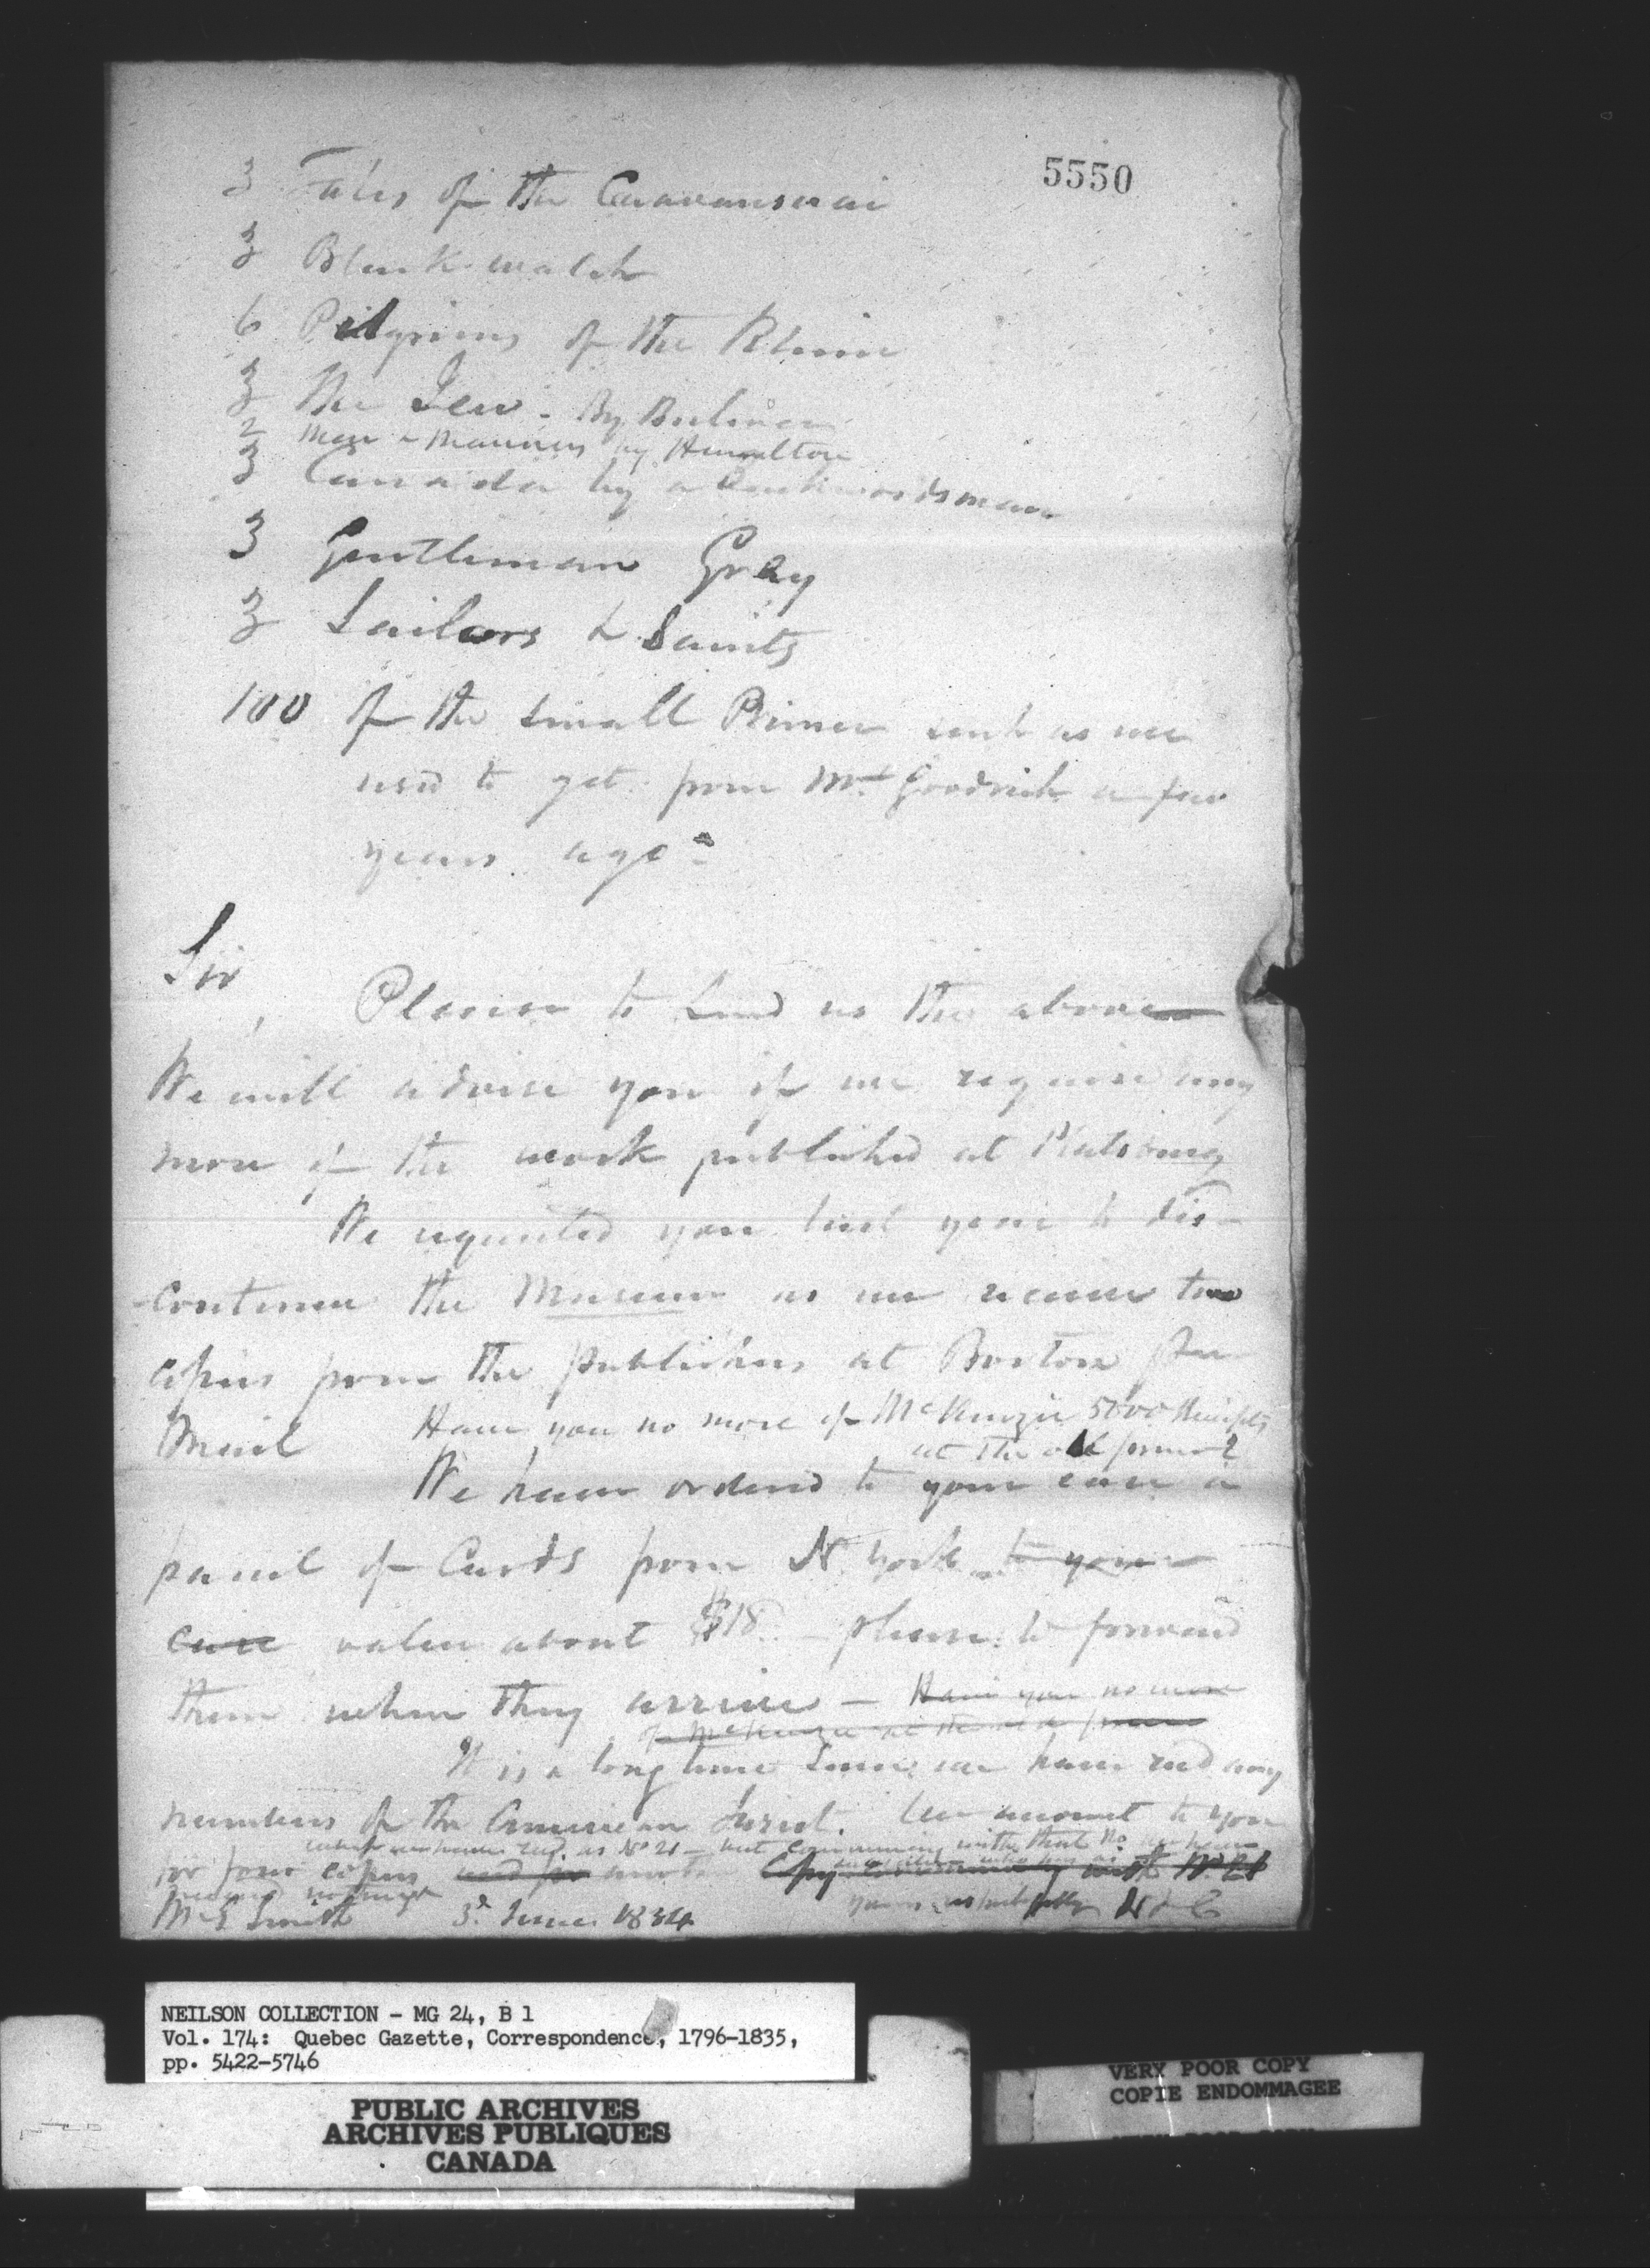 5550
3 Tales of the Caravanserai
3 Black watch
6 Pilgrims of the Rhine
3 The Jew - By
2 Men & Manners by Hamilton
3 Canada by a Backwoodsman
3 Gentleman Gray
3 Sailors & Saints
100 of the small Primer such as we
used to get from Mr Goodrich a few
years ago
Sir,
Please to send us the above
We will advise you if we require any
more of the work published at Platsburg
We requested you last year to dis-
-continue the Museum as we receive two
copies from the publishers at Boston per
Mail Have you no more of McKenzie 5000 Receipts
at the old price?
We have ordered to your care a
parcel of Cards from N York to your
care value about $18 - please to forward
them when they arrive - Have you no more
of McKenzie at the old price
It is a long time since we have recd any
numbers of the American Jurist. We account to you
what we have recd is No 21 - but commencing with that No we have
for four copies copy with No 21
received
Mr Smith 3d June 1834 yours respectfully N & C
NEILSON COLLECTION - MG 24, B 1
Vol. 174: Quebec Gazette, Correspondence, 1796-1835,
pp. 5422-5746
PUBLIC ARCHIVES
ARCHIVES PUBLIQUES
CANADA
VERY POOR COPY
COPIE ENDOMMAGEE